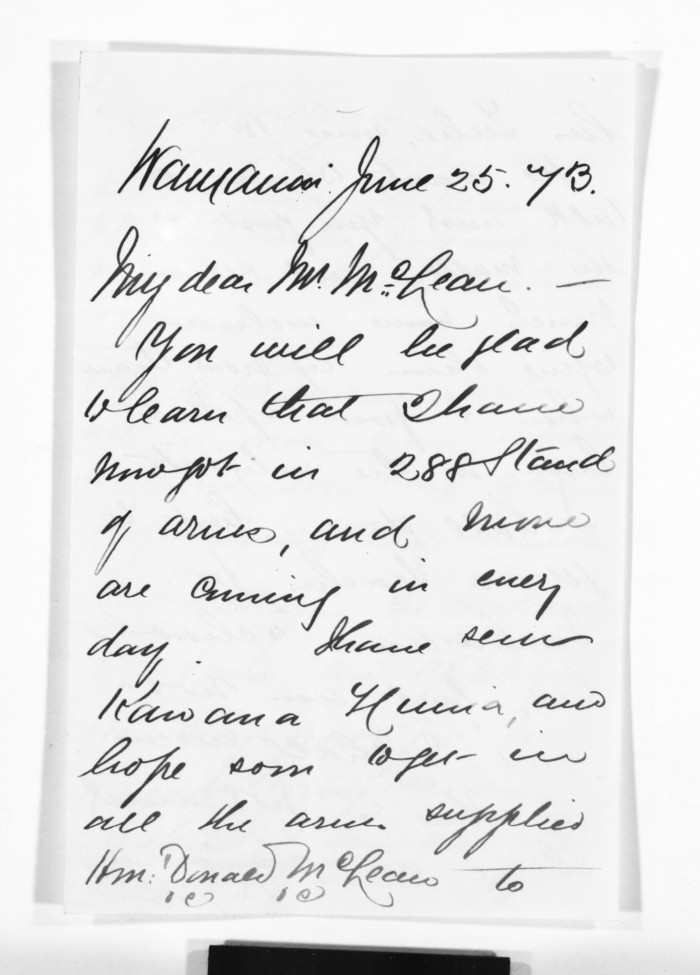 Wanganui. June 25. 73.
My dear Mr. McLean. —
You will be glad
to learn that I have
now got in 288 Stand
of arms, and more
are coming in every
day. I have seen
Kawana Hunia, and
hope soon to get in
all the arms supplied
Hon: Donald McLean to